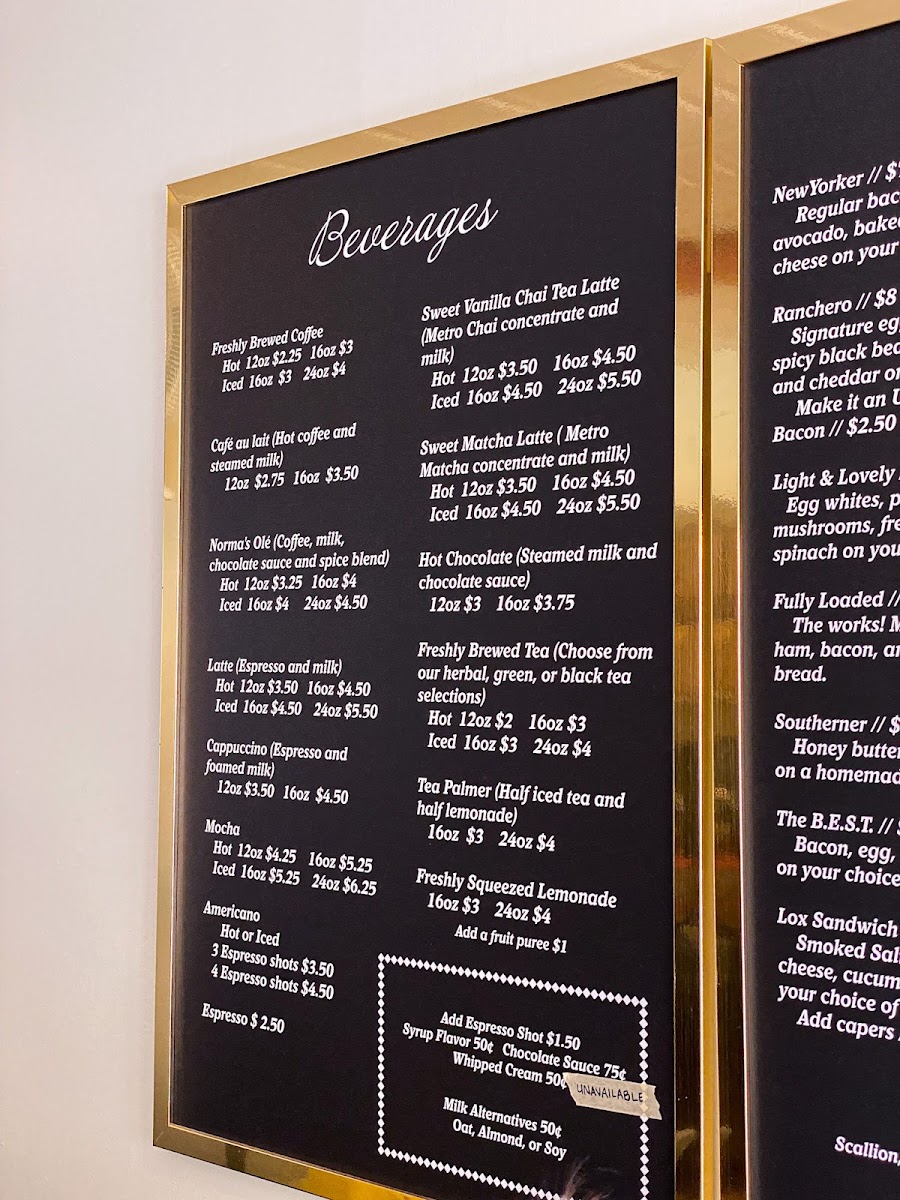 Beverages
Freshly Brewed Coffee
Hot 12oz $2.25 16oz $3
Iced 16oz $3 24oz $4
Café au lait (Hot coffee and
steamed milk)
12oz $2.75 16oz $3.50
Norma's Olé (Coffee, milk,
chocolate sauce and spice blend)
Hot 12oz $3.25 16oz $4
Iced 16oz $4 24oz $4.50
Latte (Espresso and milk)
Hot 12oz $3.50 16oz $4.50
Iced 16oz $4.50 24oz $5.50
Cappuccino (Espresso and
foamed milk)
12oz $3.50 16oz $4.50
Mocha
Hot 12oz $4.25 16oz $5.25
Iced 16oz $5.25 24oz $6.25
Americano
Hot or Iced
3 Espresso shots $3.50
4 Espresso shots $4.50
Espresso $ 2.50
Sweet Vanilla Chai Tea Latte
(Metro Chai concentrate and
milk)
Hot 12oz $3.50 16oz $4.50
Iced 16oz $4.50 24oz $5.50
Sweet Matcha Latte ( Metro
Matcha concentrate and milk)
Hot 12oz $3.50 16oz $4.50
Iced 16oz $4.50 24oz $5.50
Hot Chocolate (Steamed milk and
chocolate sauce)
12oz $3 16oz $3.75
Freshly Brewed Tea (Choose from
our herbal, green, or black tea
selections)
Hot 12oz $2 16oz $3
Iced 16oz $3 24oz $4
Tea Palmer (Half iced tea and
half lemonade)
16oz $3 24oz $4
Freshly Squeezed Lemonade
16oz $3 24oz $4
Add a fruit puree $1
Add Espresso Shot $1.50
Syrup Flavor 50¢ Chocolate Sauce 75¢
Whipped Cream 50¢
UNAVAILABLE
Milk Alternatives 50¢
Oat, Almond, or Soy
NewYorker // $
Regular bac
avocado, bake
cheese on your
Ranchero // $8
Signature eg
spicy black bea
and cheddar o
Make it an U
Bacon // $2.50
Light & Lovely
Egg whites, p
mushrooms, fre
spinach on you
Fully Loaded //
The works! M
ham, bacon, a
bread.
Southerner // $
Honey butte
on a homemad
The B.E.S.T. //
Bacon, egg,
on your choice
Lox Sandwich
Smoked Sal
cheese, cucum
your choice of
Add capers
Scallion,